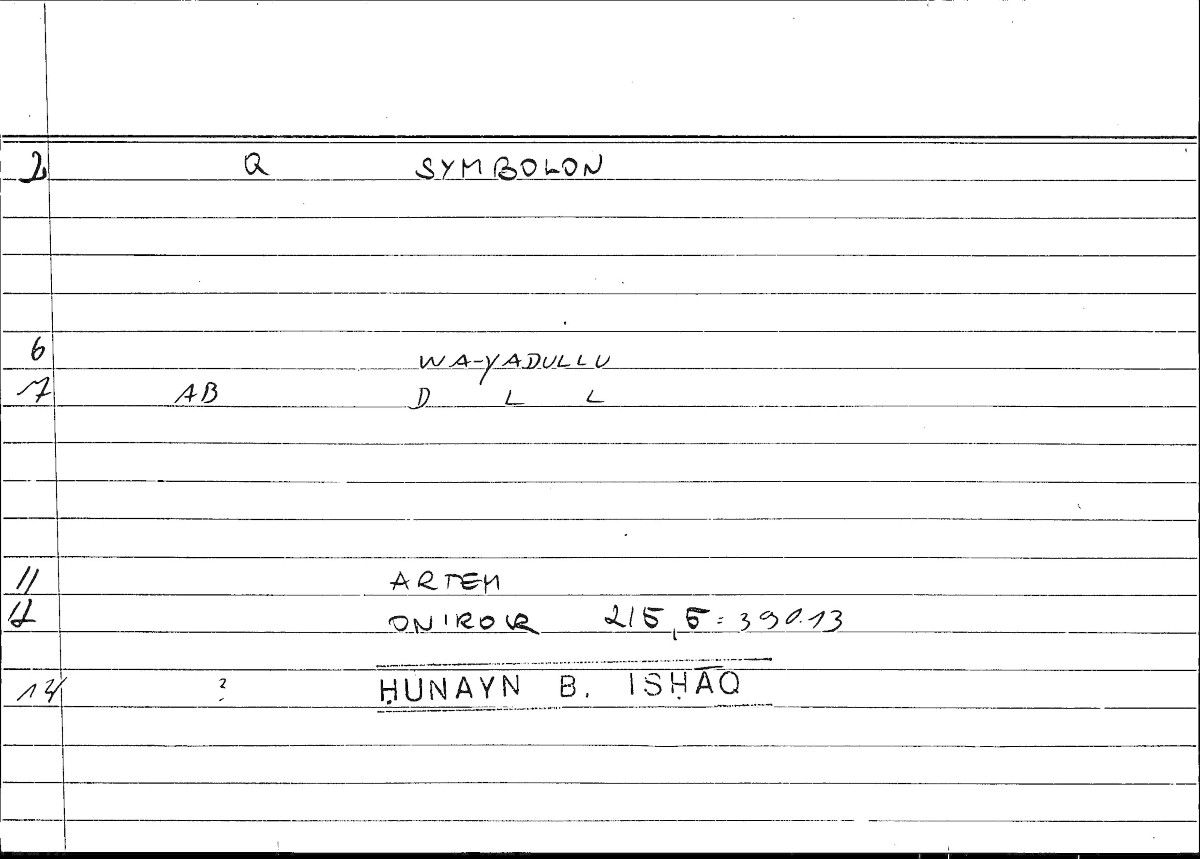 2 Q SYMBOLON
6 WA-YADULLU
7 AB D L L
11 ARTEM
12 ONIROKR 215,5 = 390.13
13/ ? ḤUNAYN B. ISḤĀQ